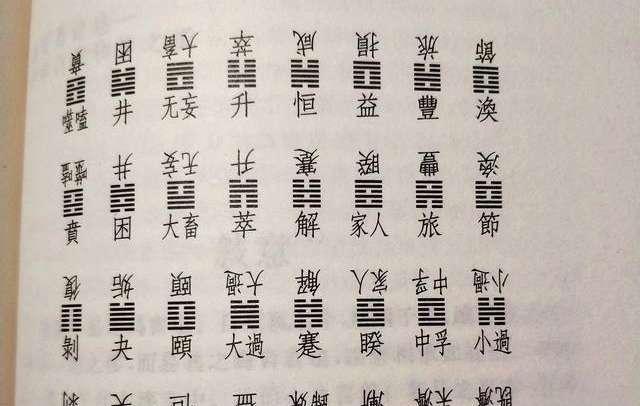 賁 困 大畜 萃 咸 損 旅 節
噬嗑 井 无妄 升 恒 益 豐 渙
噬嗑 井 无妄 升 蹇 睽 豐 渙
賁 困 大畜 萃 解 家人 旅 節
復 姤 頤 大過 解 家人 中孚 小過
剝 夬 頤 大過 蹇 睽 中孚 小過